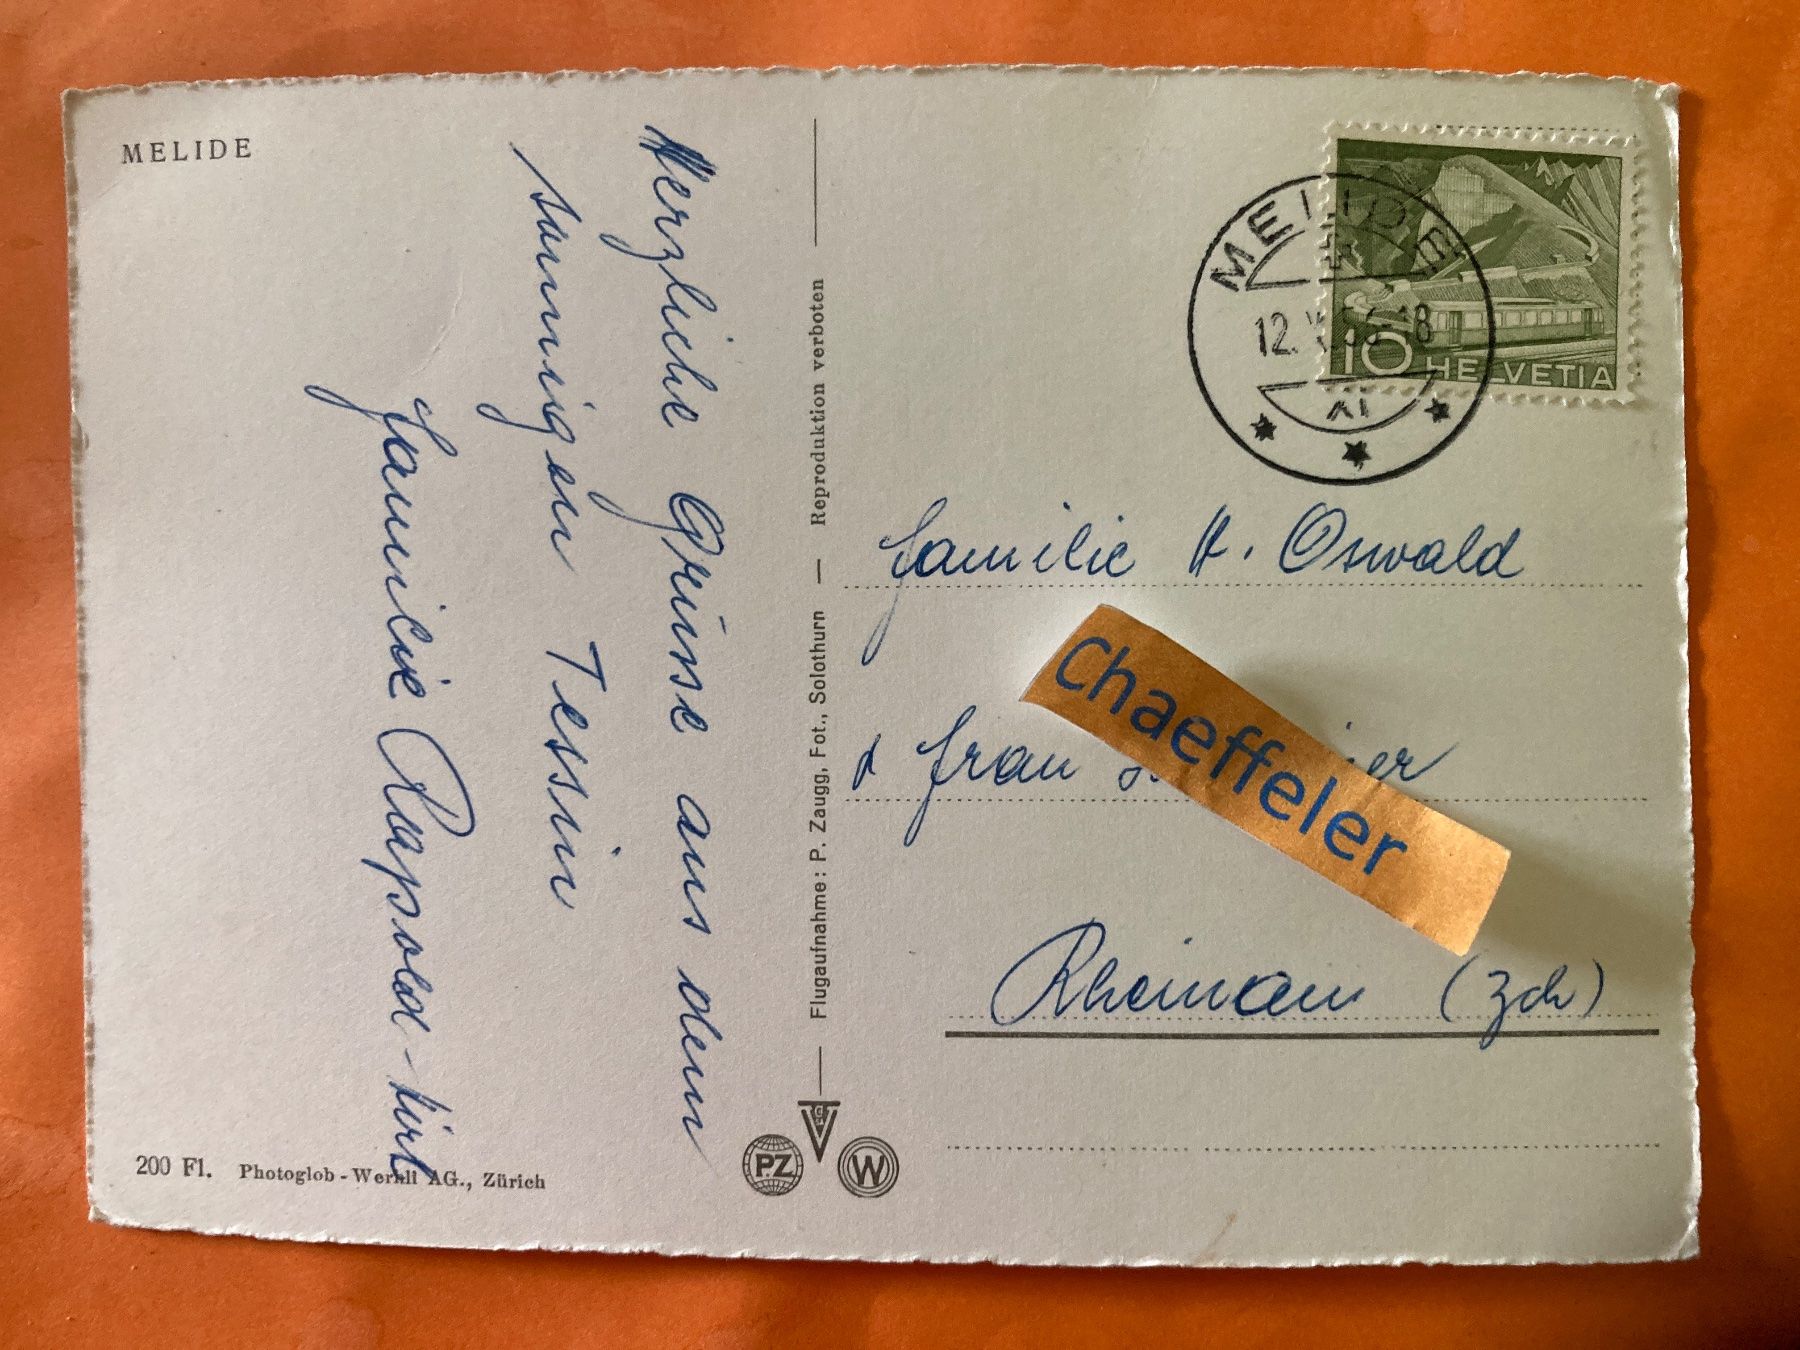 MELIDE
Herzliche Grüsse aus dem
sonnigen Tessin
Familie Rapsold-
200 Fl. Photoglob-Wehrli AG., Zürich
Flugaufnahme: P. Zaugg, Fot., Solothurn — Reproduktion verboten
PZ
W
MELIDE
12. 18
10 HELVETIA
Familie H. Oswald
Frau
Chaeffeler
Rheinau (Zch)